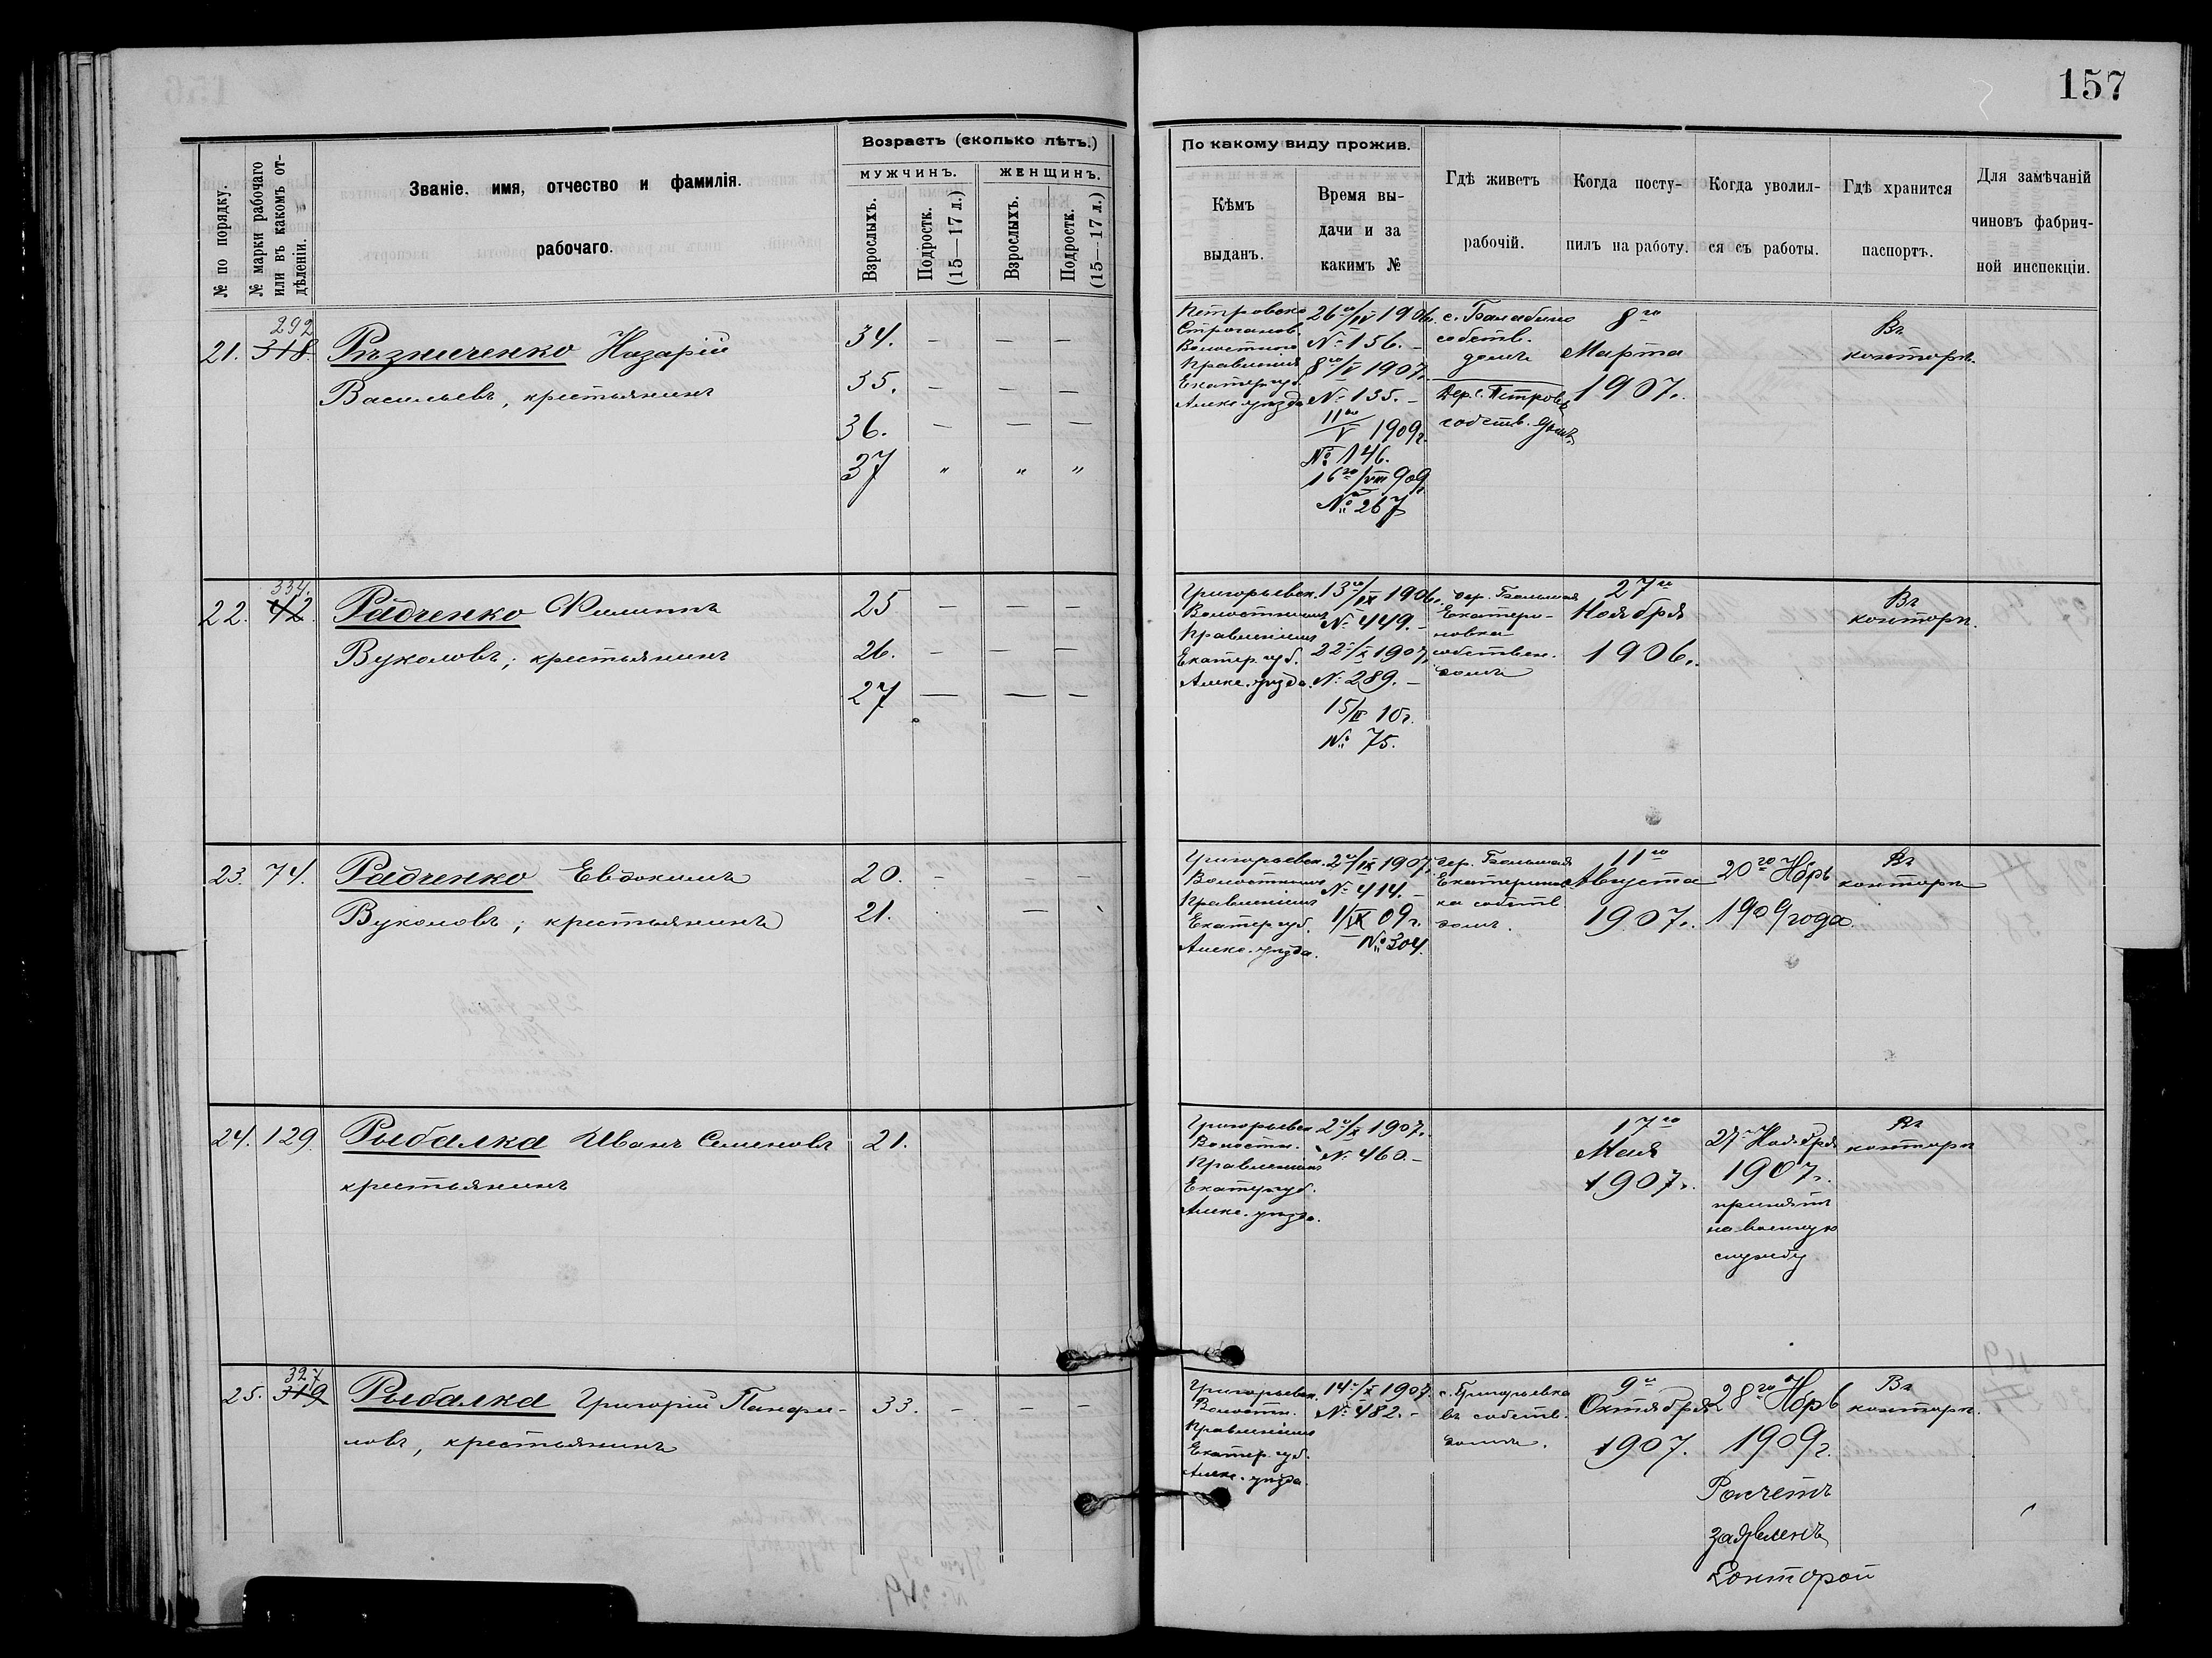 157
№ по порядку.
№ марки рабочаго
или въ какомъ от-
дѣленіи.
Званіе, имя, отчество и фамилія.
рабочаго.
Возрастъ (сколько лѣтъ.)
МУЖЧИНЪ.
ЖЕНЩИНЪ.
Взрослыхъ.
Подростк.
(15—17 л.)
Взрослыхъ.
Подростк.
(15—17 л.)
По какому виду прожив.
Кѣмъ
выданъ.
Время вы-
дачи и за
какимъ №
Гдѣ живетъ
рабочій.
Когда посту-
пилъ на работу.
Когда уволил-
ся съ работы.
Гдѣ хранится
паспортъ.
Для замѣчаній
чиновъ фабрич-
ной инспекціи.
21.
292
318.
Рѣзниченко Назарій
Васильевъ, крестьянинъ
34. — — —
35. — — —
36. — — —
37 " " "
Петровско
Строганов.
Волостного
Правленія
Екатер. губ.
Алекс. уѣзда
26го/IV 1906г.
№ 156. —
8го/V 1907г.
№ 135. —
11го/V 1909г.
№ 146.
16го/VIII 909
№ 267
с. Балабино
собств.
домъ
Дер. с. Петровск
собств. домъ
8го
Марта
1907г.
Въ
конторѣ.
22.
334.
42.
Радченко Филиппъ
Вуколовъ; крестьянинъ
25 — — —
26. — — —
27 — — —
Григорьевск.
Волостнымъ
Правленіемъ
Екатер. губ.
Алекс. уѣзда.
13го/IX 1906г.
№ 449. —
22го/X 1907г.
№ 289. —
15/II 10г.
№ 75.
дер. Большая
Екатери-
новка
собствен.
домъ
27го
Ноября
1906г.
Въ
конторѣ.
23. 74.
Радченко Евдокимъ
Вуколовъ; крестьянинъ
20. — — —
21. —
Григорьевск.
Волостнымъ
Правленіемъ
Екатер. губ.
Алекс. уѣзда.
2го/IX 1907г.
№ 414. —
1/IX 09г.
№ 304.
дер. Большая
Екатеринов
ка собств.
домъ.
11го
Августа
1907г.
20го Нбрь
1909 года.
Въ
конторѣ
24. 129.
Рыбалка Иванъ Семеновъ
крестьянинъ
21.
Григорьевск.
Волостн.
Правленіемъ
Екатер. губ.
Алекс. уѣзда.
2го/X 1907г.
№ 460. —
17го
Мая
1907г.
27го Ноября
1907г.
принятъ
на военную
службу
Въ
конторѣ
25.
327
319
Рыбалка Григорій Панфи-
ловъ, крестьянинъ
33. — — —
Григорьевск.
Волостн.
Правленіемъ
Екатер. губ.
Алекс. уѣзда.
14го/X 1907г.
№ 482. —
с. Григорьевка
въ собств.
домъ.
9го
Октября
1907.
28го Нбрь
1909г.
Расчетъ
заявленъ
Конторой
Въ
конторѣ.